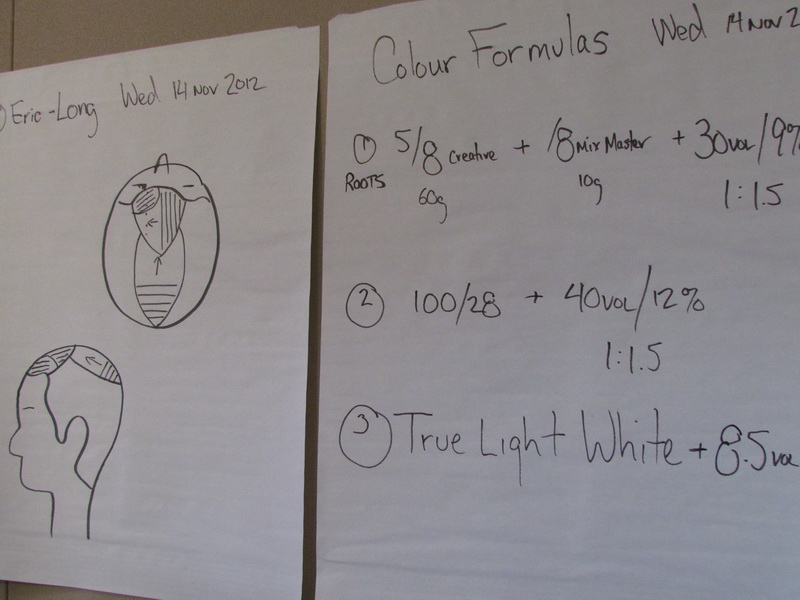 Eric-Long Wed 14 Nov 2012
Colour Formulas Wed 14 Nov 2
1 5/8 Creative + /8 Mix Master + 30vol/9%
ROOTS 60g 10g 1:1.5
2 100/28 + 40vol/12%
1:1.5
3 True Light White + 8.5vol